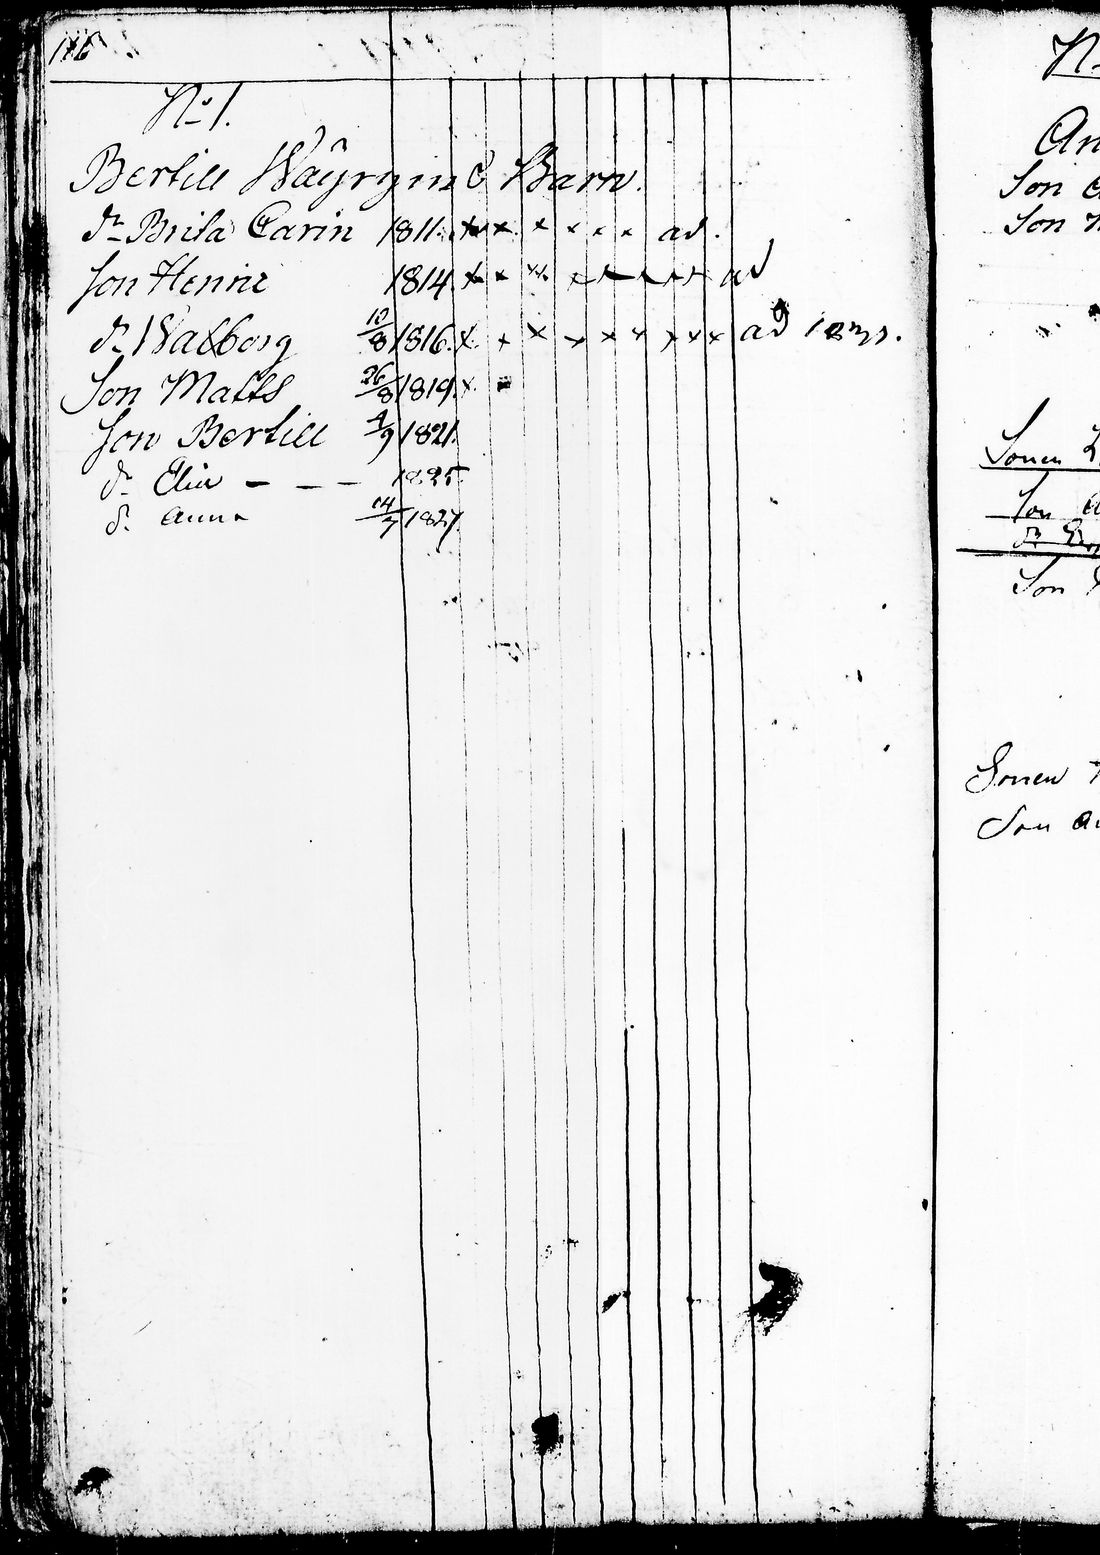 116
No 1.
Bertill Wäyrynin Barn.
dr Brita Carin 1811. x x x x x x ad.
Son Henric 1814. x x x x ad
dr Walborg 10/8 1816. x x x x x x x x x ad
Son Matts 26/8 1819. x
Son Bertill 4/9 1821.
dr Elin - - - 1825
dr Anna 14/7 1827.
Son
Son
Sonen
Son
dr
Son
Sonen
Son